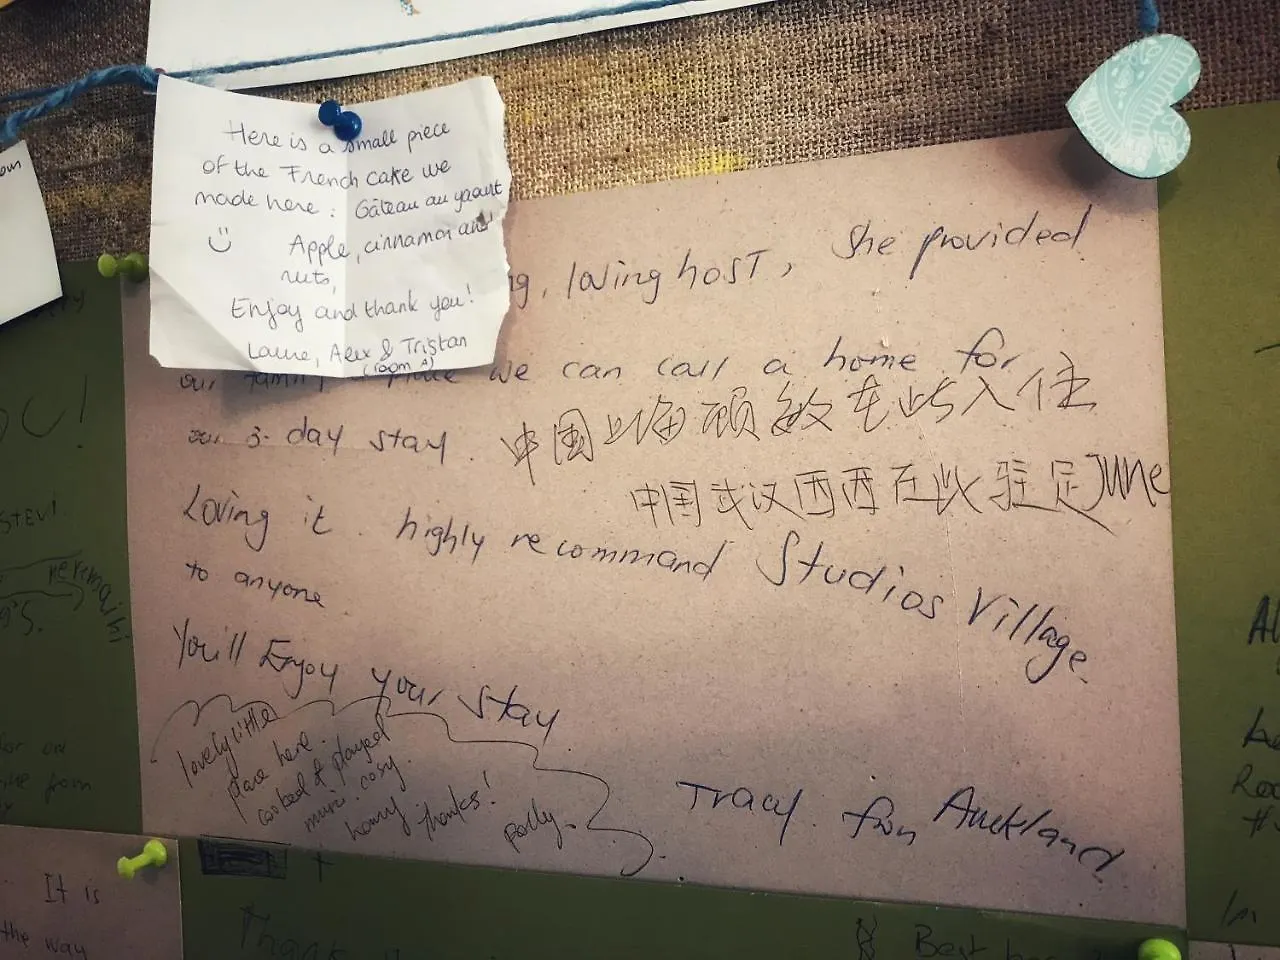 Here is a small piece
of the French cake we
made here : Gâteau au yaourt
Apple, cinnamon and
nuts,
Enjoy and thank you!
Laure, Alex & Tristan
(room A)
g, loving host, She provided
our family place we can call a home for
our 3 day stay.
中国上海顾敏在此入住
中国武汉西西在此驻足June
Loving it. highly recommand Studios Village
to anyone.
You'll Enjoy your stay
lovely little
place here.
cooked & played
music. cosy.
homy
thanks!
Polly.
Tracy from Auckland
It is
the way
Thank
Best